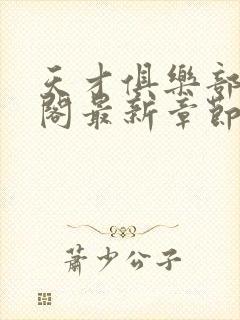 天才俱樂部
閣最新章節
蕭少公子